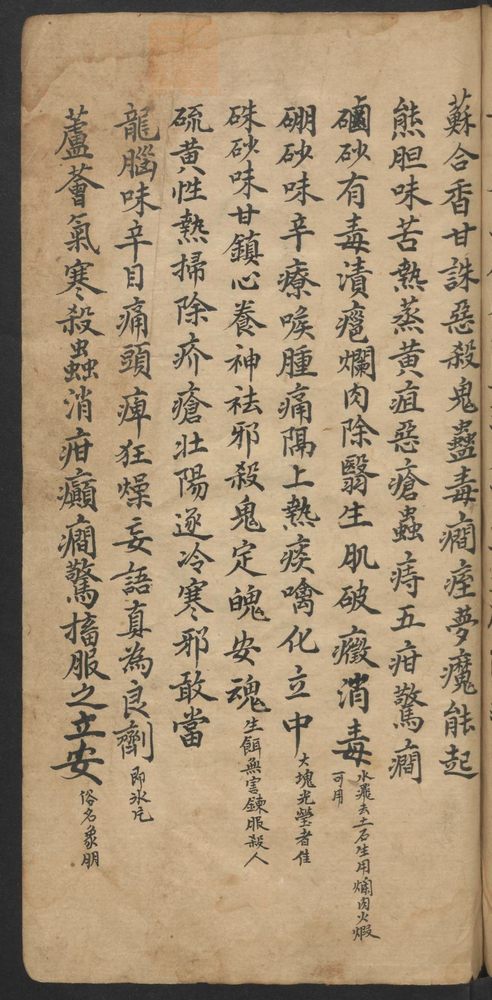 蘇合香甘誅惡殺鬼蠱毒癇痓夢魘能起
熊胆味苦熱蒸黃疸惡瘡蟲痔五疳驚癇
磠砂有毒潰癰爛肉除翳生肌破癥消毒水飛去土石生用爛肉火煅可用
硼砂味辛療喉腫痛隔上熱痰噙化立中大塊光瑩者佳
硃砂味甘鎮心養神祛邪殺鬼定魄安魂生餌無害鍊服殺人
硫黃性熱掃除疥瘡壯陽逐冷寒邪敢當
龍腦味辛目痛頭痺狂燥妄語真為良劑即氷片
蘆薈氣寒殺蟲消疳癲癇驚搐服之立安俗名象胆